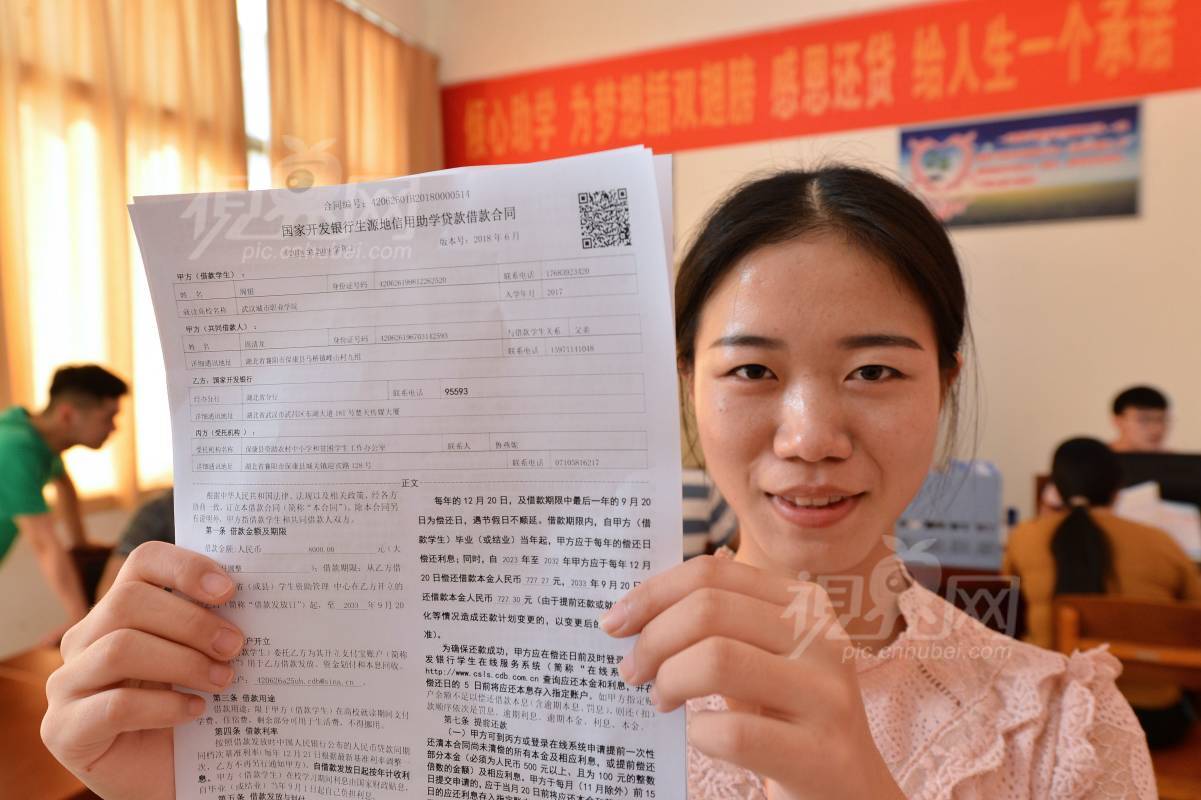 倾心助学 为梦想插双翅膀 感恩还贷 给人生一个承诺
合同编号：42062601B20180000514
国家开发银行生源地信用助学贷款借款合同
版本号：2018 年 6 月
甲方（借款学生）：
姓 名 身份证号码 联系电话 17683923420
就读高校名称 武汉城市职业学院 入学年月 2017
甲方（共同借款人）：
姓 名 身份证号码 与借款学生关系 父亲
详细通讯地址 湖北省襄阳市保康县马桥镇 村九组 联系电话 15971141048
乙方：国家开发银行
经办分行 湖北省分行 联系电话 95593
详细通讯地址 湖北省武汉市武昌区东湖大道 181 号楚天传媒大厦
丙方（受托机构）：
受托机构名称 保康县资助农村中小学和贫困学生工作办公室 联系人
详细通讯地址 湖北省襄阳市保康县城关镇迎宾路 128 号 联系电话 07105816217
正文
根据中华人民共和国法律、法规以及相关政策，经各方
协商一致，订立本借款合同（简称“本合同”）。除本合同另
有说明外，甲方指借款学生和共同借款人双方。
第一条 借款金额及期限
借款金额：人民币 8000.00 元（大
调整 ）；借款期限：从乙方借
省（或县）学生资助管理 中心在乙方开立的
（简称“借款发放日”）起，至 2033 年 9 月 20
户开立
款学生）委托乙方为其开立支付宝账户（简称
”）用于乙方借款发放、资金划付和本息回收。
第三条 借款用途
借款用途：限于甲方（借款学生）在高校就读期间支付
学费、住宿费，剩余部分可用于生活费，不得挪用。
第四条 借款利率
按照借款发放时中国人民银行公布的人民币贷款同期
同档次基准利率（每年 12 月 21 日根据最新基准利率调整一
次，乙方不再另行通知甲方），自借款发放日起按年计收利
息。甲方（借款学生）在校学习期间利息由国家财政贴息，
自毕业（或结业）当年 9 月 1 日起自己负担利息。
第五条 借款发放与
每年的 12 月 20 日，及借款期限中最后一年的 9 月 20
日为偿还日，遇节假日不顺延。借款期限内，自甲方（借
款学生）毕业（或结业）当年起，甲方应于每年的偿还日
偿还利息；同时，自 2023 年至 2032 年甲方应于每年 12
月 20 日偿还借款本金人民币 727.27 元，2033 年 9 月 20 日
还借款本金人民币 727.30 元（由于提前还款或就
化等情况造成还款计划变更的，以变更后的
准）。
为确保还款成功，甲方应在偿还日前及时登录
发银行学生在线服务系统（简称“在线系
http://www.csls.cdb.com.cn 查询应还本金和利息，并在
偿还日的 5 日前将应还本息存入指定账户。如甲方指定账
户余额不足以偿还借款本息（含逾期本息、罚息），则还（扣）
款顺序依次是罚息、逾期利息、逾期本金、利息、本金。
第七条 提前还款
（一）甲方可到丙方或登录在线系统申请提前一次性
还清本合同尚未清偿的所有本金及相应利息，或提前偿还
部分本金（必须为人民币 500 元以上，且为 100 元的整数
倍数的金额）及相应利息。甲方于每月（11 月除外）前 15
日提交申请的，应于当月 20 日前将应还本金
日的应还利息存入指定账户
視界网
pic.cnhubei.com
視界网
pic.cnhubei.com